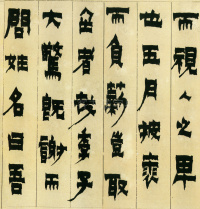 而視人之卑
也五月披裘
而負薪豈取
金者哉季子
大驚既謝而
問姓名曰吾